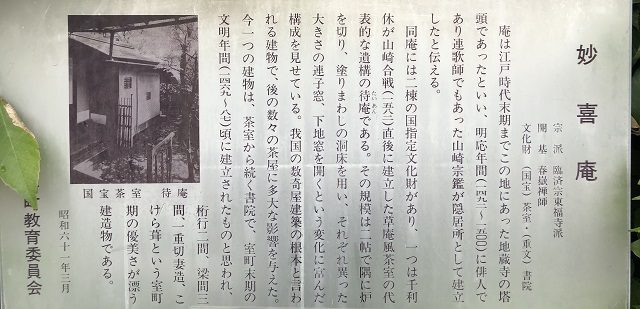 妙喜庵
宗派　臨済宗東福寺派
開基　春嶽禅師
文化財　(国宝)茶室・(重文)書院
庵は江戸時代末期までこの地にあった地蔵寺の塔
頭であったといい、明応年間(一四九二〜一五〇〇)に俳人で
あり連歌師でもあった山崎宗鑑が隠居所として建立
したと伝える。
同庵には二棟の国指定文化財があり、一つは千利
休が山崎合戦(一五八二)直後に建立した草庵風茶室の代
表的な遺構の待庵である。その規模は二帖で隅に炉
たいあん
を切り、塗りまわしの洞床を用い、それぞれ異った
大きさの連子窓、下地窓を開くという変化に富んだ
構成を見せている。我国の数奇屋建築の根本と言わ
れる建物で、後の数々の茶屋に多大な影響を与えた。
今一つの建物は、茶室から続く書院で、室町末期の
文明年間(一四六九〜八七)頃に建立されたものと思われ、
桁行二間、梁間三
間、一重切妻造、こ
けら葺という室町
期の優美さが漂う
建造物である。
国宝茶室　待庵
昭和六十一年三月
教育委員会